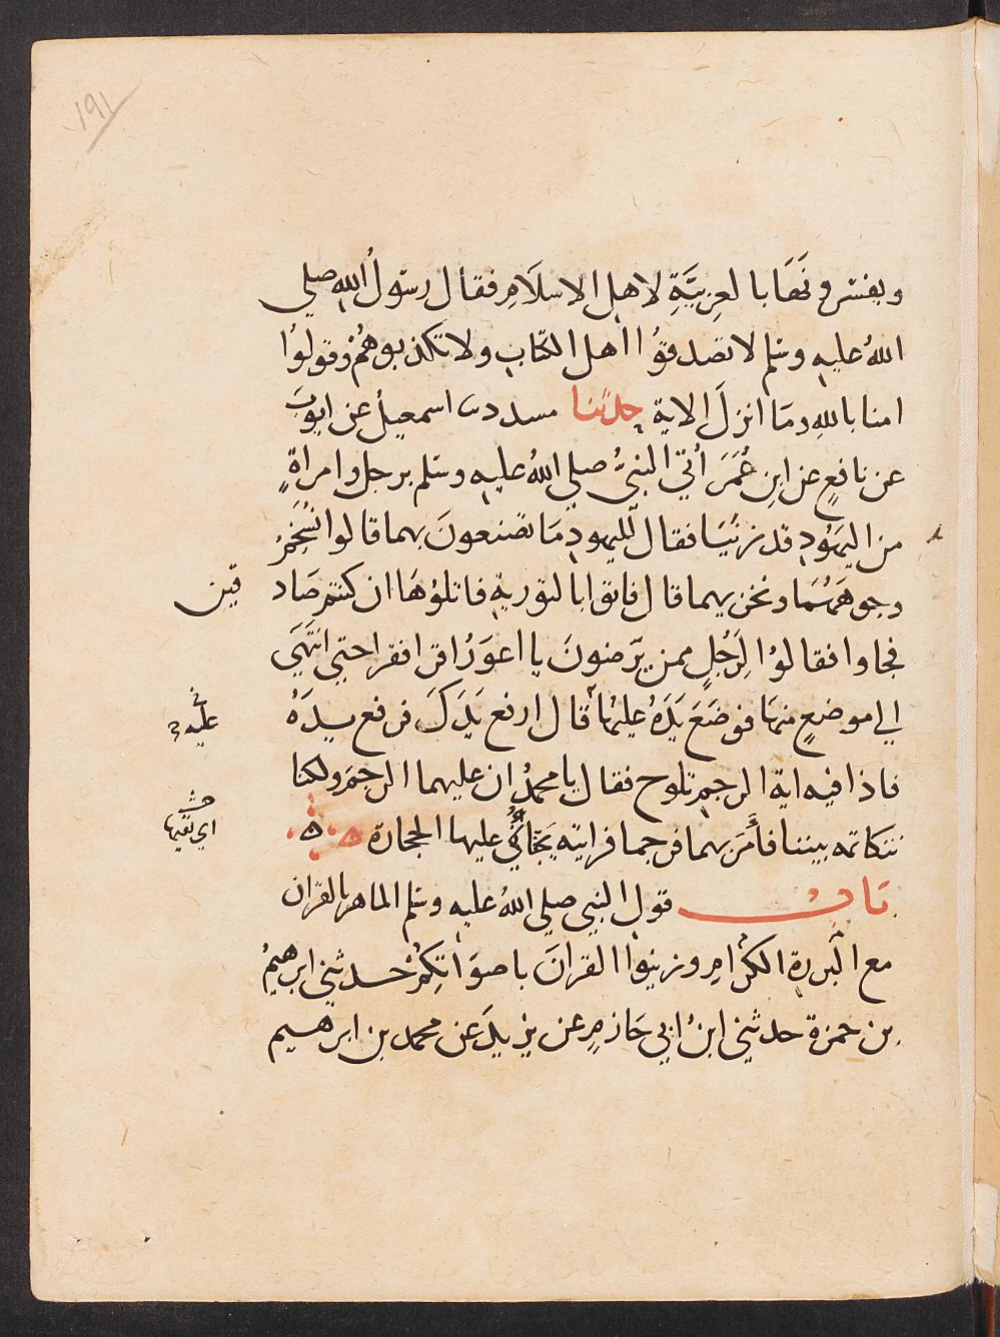 ١٩١
ويفسرونَهَا بالعربيَّةِ لاهل الاسلَامِ فقال رسُولُ اللهِ صلي
اللهُ عليه وسلم لا تصدقوُا اهل الكتاب ولا تكذبوهُمْ وقولوُا
امنا باللهِ ومَا انزلَ الاية حدثنا مسدد دسا اسمعيلُ عن ايوبَ
عن نافعٍ عن ابنِ عُمَرَ اُتي النبيُّ صلي اللهُ عليه وسلم برجل وامراةٍ
من اليهُودِ قد زنَيَا فقال لليهودِ مَا تصنعونَ بهما قالوا نُسَخِّمُ
وجوهَهُمَا ونخزيهما قال فاتوا بالتوريةِ فاتلوُهَا ان كنتم صَاد
قين
فجاوا فقالوُا لِرَجُلٍ ممن يَرضونَ يا اعورُ اقرا فقرا حتي انتَهَي
الي موضعٍ منهَا فوضَعَ يَدَهُ عليهَا قال ارفع يَدَكَ فرفع يدَهُ
عليه
فاذا فيه اية الرجم تلوح فقال يا محمدُ ان عليهما الرجمَ ولكنا
نتكاتمه بيننا فأمَرَ بهما فرجما فرايته يَجَانِيُ عليها الحجارة ه ه
اي يقيها
بَاب قول النبي صلي اللهُ عليه وسلم الماهر بالقران
مع البَررةِ الكرامِ وزينوا القرانَ باصوَاتكمْ حدثني ابرهيمُ
بن حمزة حدثني ابنُ ابي حَازمٍ عن يزيدَ عن محمد بن ابرهيم